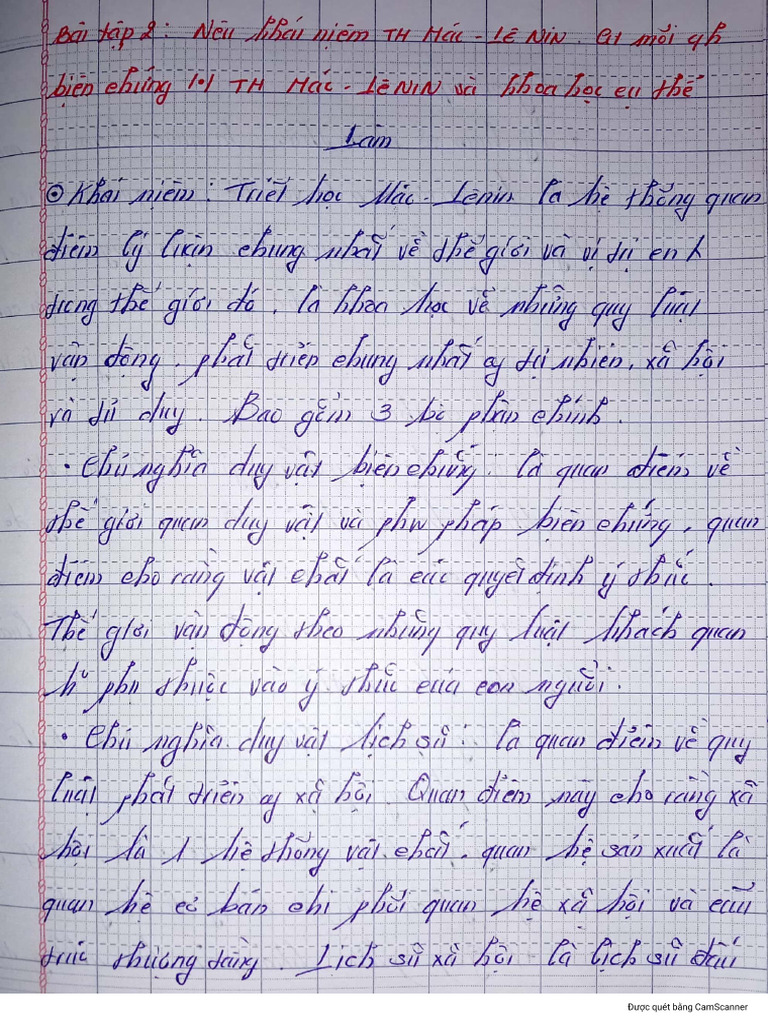 Bài tập 2: Nêu khái niệm TH Mác - Lê Nin. CM mối qh
biện chứng 1.1 TH Mác - LêNIN và khoa học cụ thể
Làm
Khái niệm: Triết học Mác - Lênin là hệ thống quan
điểm lý luận chung nhất về thế giới và vị trí con
trong thế giới đó, là khoa học về những quy luật
vận động, phát triển chung nhất của tự nhiên, xã hội
và tư duy. Bao gồm 3 bộ phận chính.
• Chủ nghĩa duy vật biện chứng. là quan điểm về
thế giới quan duy vật và phương pháp biện chứng, quan
điểm cho rằng vật chất là quyết định ý thức.
Thế giới vận động theo những quy luật khách quan
phụ thuộc vào ý thức của con người.
• Chủ nghĩa duy vật lịch sử: là quan điểm về quy
luật phát triển xã hội. Quan điểm này cho rằng xã
hội là 1 hệ thống vật chất, quan hệ sản xuất là
quan hệ cơ bản chi phối quan hệ xã hội và cấu
trúc thượng tầng. Lịch sử xã hội là lịch sử đấu
Được quét bằng CamScanner